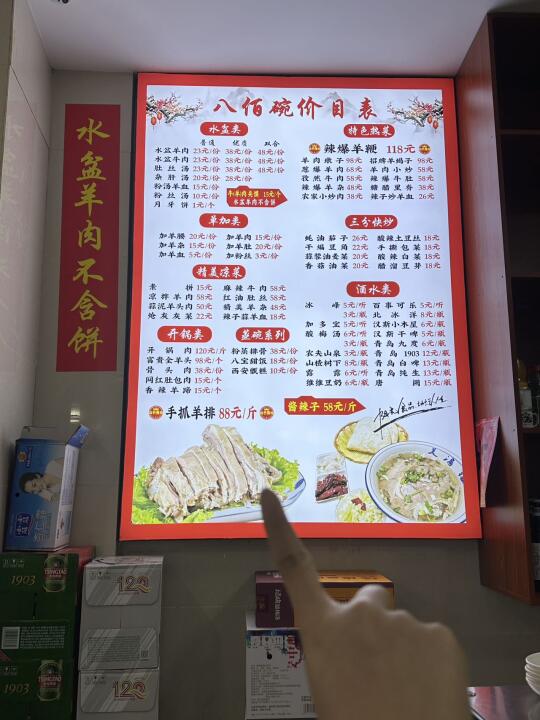 八佰碗价目表
水盆类
普通 优质 双合
水盆羊肉 23元/份 38元/份 48元/份
水盆牛肉 23元/份 38元/份 48元/份
肚丝汤 23元/份 38元/份 48元/份
杂肝汤 20元/份 28元/份
粉汤羊血 15元/份
粉丝汤 10元/份
月牙饼 1元/个
牛(羊)肉夹馍 15元/个
水盆羊肉不含饼
特色热菜
辣爆羊鞭 118元/份
羊肉墩子 98元 招牌羊蝎子 98元
葱爆羊肉 68元 羊肉小炒 58元
孜然牛肉 58元 辣爆牛肚 58元
辣爆羊杂 48元 糖醋里脊 38元
农家小炒肉 38元 辣子炒羊血 26元
单加类
加羊腰 20元/份 加羊肉 15元/份
加羊杂 15元/份 加羊肚 20元/份
加羊血 5元/份 加粉丝 3元/份
三分快炒
蚝油茄子 26元 酸辣土豆丝 18元
干煸豆角 22元 手撕包菜 18元
蒜蓉油麦菜 20元 酸辣白菜 18元
香菇油菜 20元 醋溜豆芽 18元
精美凉菜
素拼 15元 麻辣牛肉 58元
凉拌羊肉 58元 红油肚丝 58元
蒜泥羊头肉 50元 精美羊杂 48元
炝灰灰菜 22元 辣子蒜羊血 18元
酒水类
冰峰 5元/听 百事可乐 5元/听
北冰洋 8元/瓶
加多宝 5元/听 汉斯小木屋 6元/瓶
酸梅汤 6元/听 汉斯干啤 5元/瓶
3元/瓶 青岛九度 6元/瓶
农夫山泉 3元/瓶 青岛1903 12元/瓶
山楂树下 8元/瓶 青岛白啤 13元/听
露露 6元/听 青岛纯生 13元/瓶
维维豆奶 6元/瓶 唐
15元/瓶
开锅类
开锅肉 120元/斤
富贵金羊头 98元/个
骨头肉 38元/份
网红肚包肉 15元/个
香辣羊蹄 15元/个
蒸碗系列
粉蒸排骨 38元/份
八宝甜饭 18元/份
西安甑糕 10元/份
手抓羊排 88元/斤
酱辣子 58元/斤
水盆羊肉不含饼
1903
TSINGTAO
1903
TSINGTAO